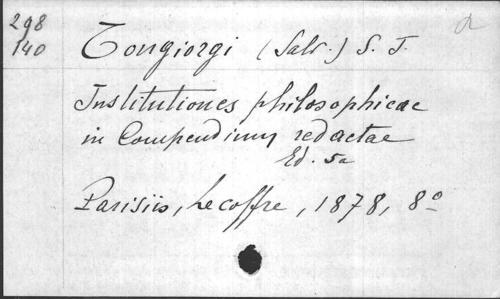 298
140
Tongiorgi (Salv.) S. J.
Institutiones philosophicae
in Compendium redactae
Ed. 5a
Parisiis, Lecoffre, 1878, 8º